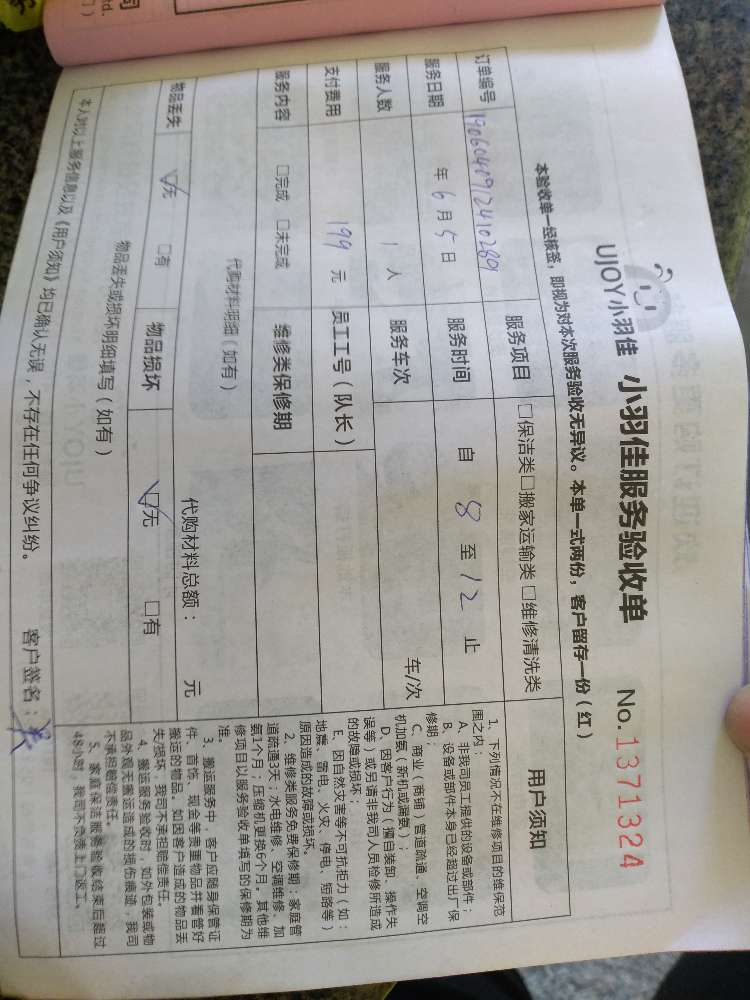 UJOY小羽佳 小羽佳服务验收单 No.1371324
本验收单一经核签，即视为对本次服务验收无异议。本单一式两份，客户留存一份（红）
订单编号 1906040912410289 服务项目 □保洁类□搬家运输类□维修清洗类
服务日期 年6月5日 服务时间 自 8 至 12 止
服务人数 1 人 服务车次 车/次
支付费用 199 元 员工工号（队长）
服务内容 □完成 □未完成 维修类保修期
代购材料明细（如有） 代购材料总额： 元
物品丢失 ☑无 □有 物品损坏 ☑无 □有
物品丢失或损坏明细填写（如有）
本人对以上服务信息以及《用户须知》均已确认无误，不存在任何争议纠纷。 客户签名：
用户须知
1、下列情况不在维修项目的维保范
围之内：
A、非我司员工提供的设备或部件；
B、设备或部件本身已经超过出厂保
修期；
C、商业（商铺）管道疏通、空调空
机加氨（新机或漏氨）；
D、因客户行为（擅自装卸、操作失
误等）或另请非我司人员检修所造成
的故障或损坏；
E、因自然灾害等不可抗拒力（如：
地震、雷电、火灾、停电、短路等）
原因造成的故障或损坏。
2、维修类服务免费保修期：家庭管
道疏通3天；水电维修、空调维修、加
氨1个月；压缩机更换6个月。其他维
修项目以服务验收单填写的保修期为
准。
3、搬运服务中，客户应随身保管证
件、首饰、现金等贵重物品并看管好
搬运的物品。如因客户造成的物品丢
失/损坏，我司不承担赔偿责任。
4、搬运服务验收时，如外包装或物
品外观无搬运造成的损伤痕迹，我司
不承担赔偿责任。
5、家庭保洁服务验收结束后超过
48小时，我司不承诺上门返工。